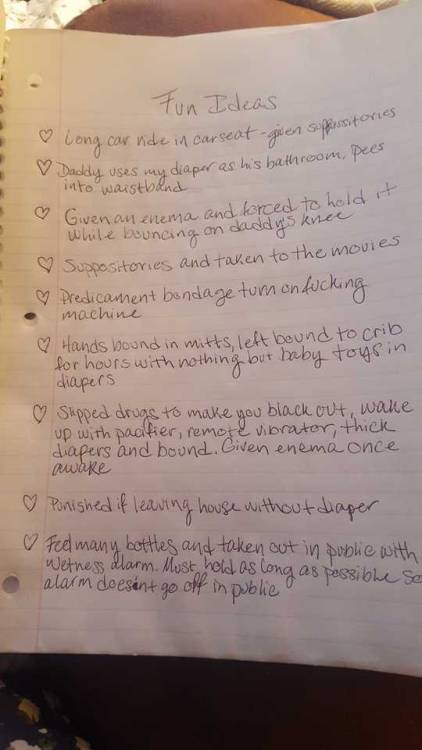 Fun Ideas
♡ Long car ride in carseat - given suppissitories
♡ Daddy uses my diaper as his bathroom, Pees
into waistband
♡ Given an enema and forced to hold it
while bouncing on daddy's knee
♡ Suppositories and taken to the movies
♡ Predicament bondage turn on fucking
machine
♡ Hands bound in mitts, left bound to crib
for hours with nothing but baby toys in
diapers
♡ Slipped drugs to make you black out, wake
up with pacifier, remote vibrator, thick
diapers and bound. Given enema once
awake
♡ Punished if leaving house without diaper
♡ Feed many bottles and taken out in public with
wetness alarm. Must hold as long as possible so
alarm doesn't go off in public